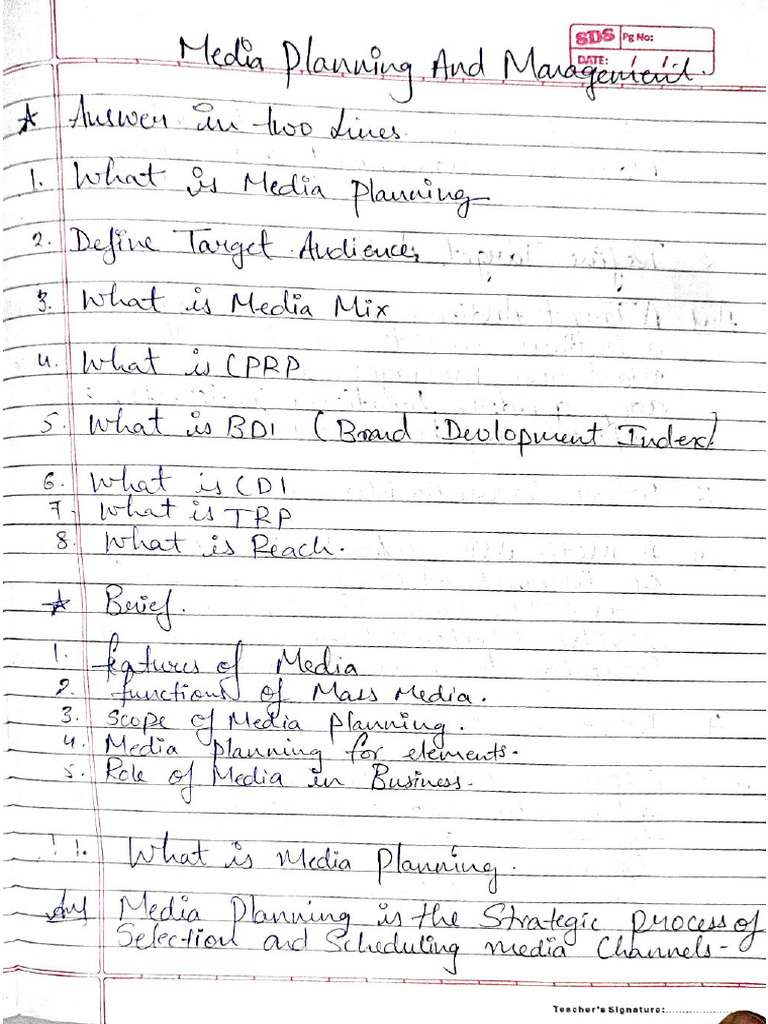 SDS Pg No:
DATE: / /
Media Planning And Management.
☆ Answer in two Lines
1. What is Media planning
2. Define Target Audience,
3. What is Media Mix
4. What is CPRP
5. What is BDI (Board Devlopment Index)
6. What is CDI
7. What is TRP
8. What is Reach.
☆ Brief.
1. features of Media
2. functions of Mass Media.
3. Scope of Media planning.
4. Media planning for elements.
5. Role of Media in Business.
1. What is Media planning.
Ans Media Planning is the Strategic process of
Selection and Scheduling media Channels-
Teacher's Signature: